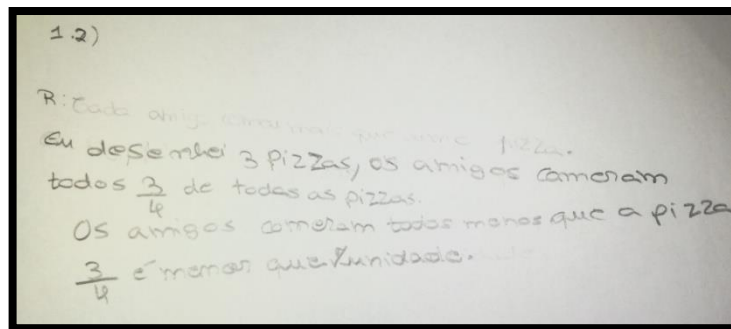 1.2)
R: Cada amigo comeu mais que uma pizza.
Eu desenhei 3 pizzas, os amigos comeram
todos 3/4 de todas as pizzas.
Os amigos comeram todos menos que a pizza
3/4 é menor que unidade.